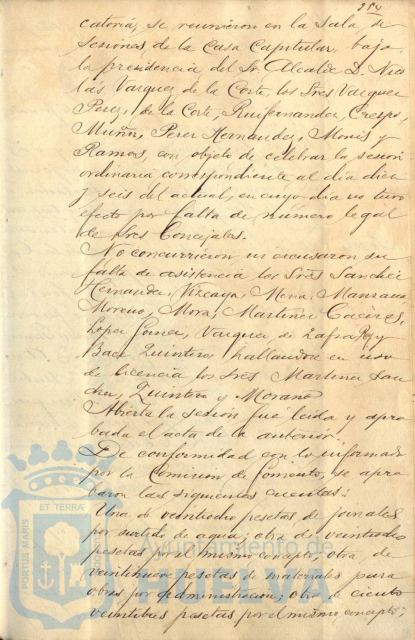 254
catoria, se reunieron en la Sala de
sesiones de la Casa Capitular bajo
la presidencia del Sr Alcalde D. Nico
lás Vazquez de la Corte, los Sres Vazquez
Perez, de la Corte, Ruifernandez, Crespo,
Muñoz, Perez Hernandez, Monis y
Ramos, con objeto de celebrar la sesion
ordinaria correspondiente al dia diez
y seis del actual, en cuyo dia no tuvo
efecto por falta de número legal
de Sres Concejales.
No concurrieron ni excusaron su
falta de asistencia los Sres Sanchez
Hernandez, Vizcaya, Mena, Manzano
Moreno, Mora, Martinez Caceres,
Lopez Gomez, Vazquez de Zafra, Rey y
Baez Quintero hallandose en uso
de licencia los Sres Martinez San
chez, Quintero y Morano
Abierta la sesión fué leida y apro
bada el acta de la anterior.
De conformidad con lo informado
por la Comision de fomento, se apro
baron las siguientes cuentas:
Una de veintiocho pesetas de jornales
por surtido de agua; otra de veintiocho
pesetas del mismo concepto; otra de
veintinueve pesetas de materiales para
obras por administración; otra de ciento
veintitres pesetas por el mismo concepto;
PORTUS MARIS
ET TERRÆ
Ayuntamiento de
HUELVA